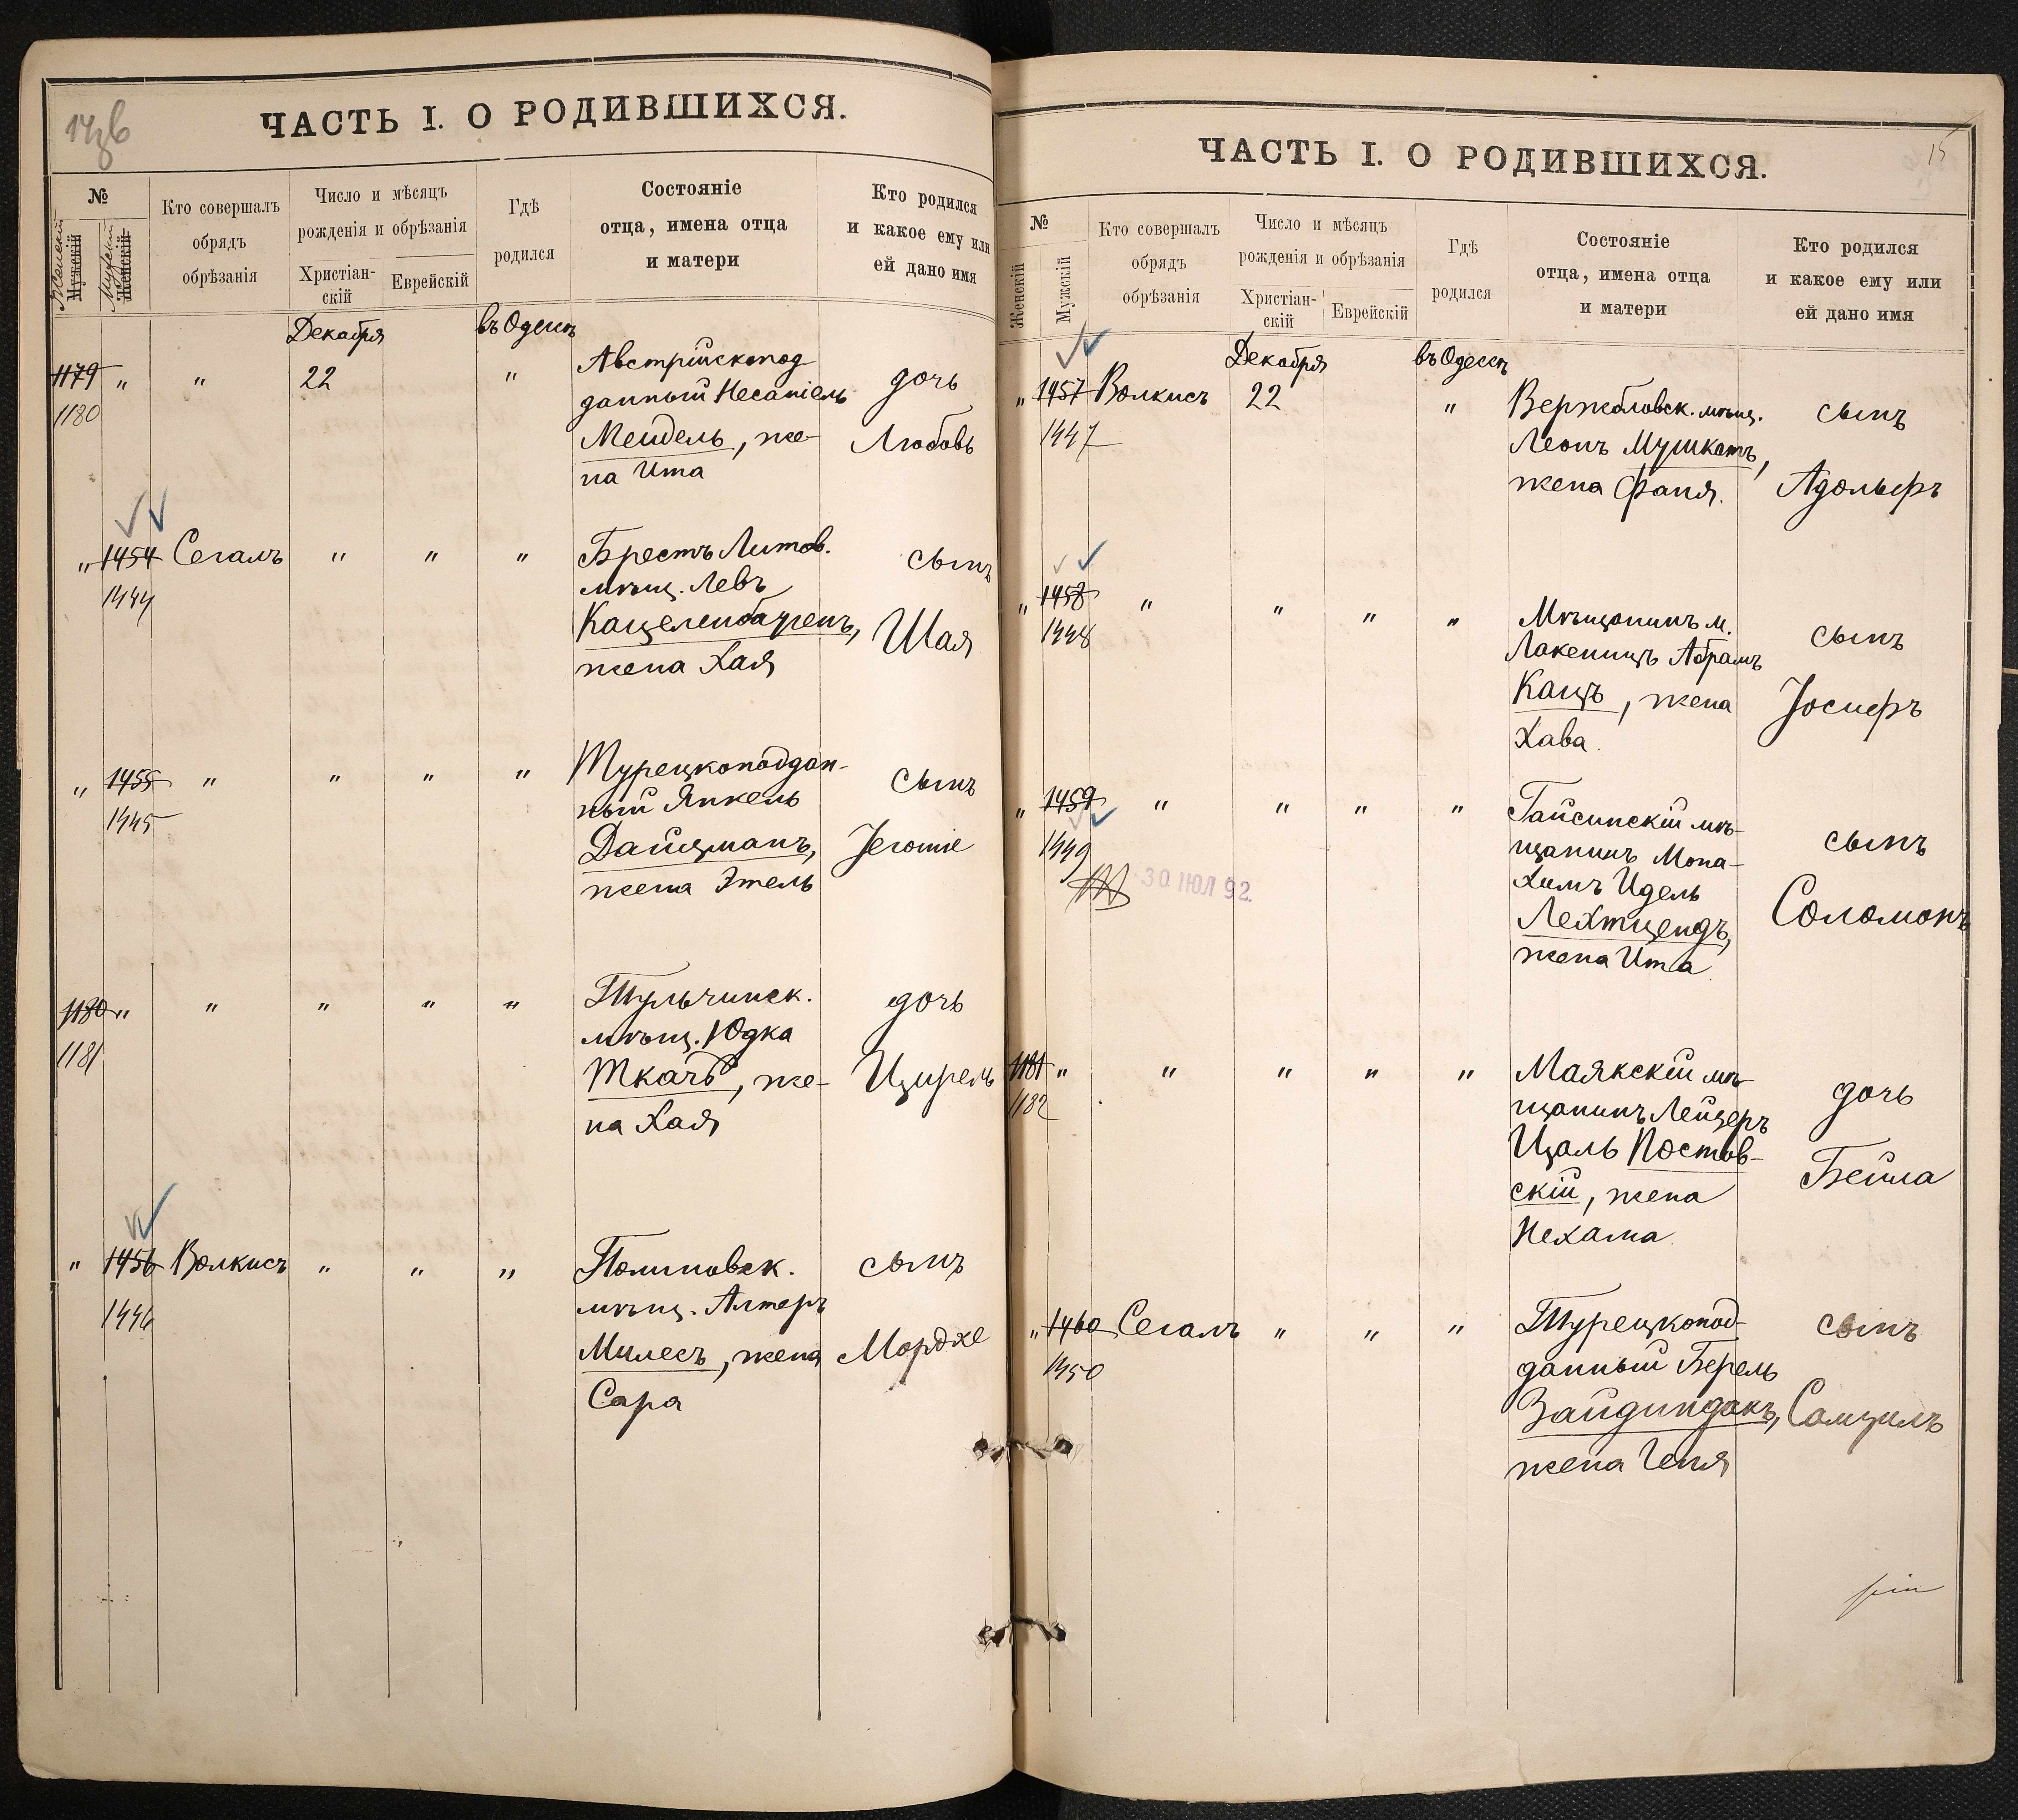 ЧАСТЬ I. О РОДИВШИХСЯ.
№
Женскій
Мужскій
Мужскій
Женскій
Кто совершалъ
обрядъ
обрѣзанія
Число и мѣсяцъ
рожденія и обрѣзанія
Христіан-
скій
Еврейскій
Гдѣ
родился
Состояніе
отца, имена отца
и матери
Кто родился
и какое ему или
ей дано имя
Декабря
въ Одессѣ
1179 " " 22 "
1180
Австрійскопод
данный Несаніель
Мендель, же-
на Ита
дочь
Любовь
" 1454 Сегалъ " " "
1444
Брестъ Литов.
мѣщ. Левъ
Каценленбагенъ,
жена Хая
сынъ
Шая
" 1455 " " " "
1445
Турецкоподдан-
ный Янкель
Дайцманъ,
жена Этель
сынъ
Jеготіе
1180 " " " " "
1181
Тульчинск.
мѣщ. Юдка
Ткачъ, же-
на Хая
дочь
Цирель
" 1456 Волкисъ " " "
1446
мѣщ. Алтеръ
Милесъ, жена
Сара
сынъ
Мордхе
ЧАСТЬ I. О РОДИВШИХСЯ.
15
№
Женскій
Мужскій
Кто совершалъ
обрядъ
обрѣзанія
Число и мѣсяцъ
рожденія и обрѣзанія
Христіан-
скій
Еврейскій
Гдѣ
родился
Состояніе
отца, имена отца
и матери
Кто родился
и какое ему или
ей дано имя
Декабря
въ Одессѣ
" 1457 Волкисъ 22 "
1447
Вержбловск. мѣщ.
Леонъ Мушкатъ,
жена Фаня.
сынъ
Адольфъ
" 1458 " " " "
1448
Мѣщанинъ м.
Лакеницъ Абрамъ
Кацъ, жена
Хава.
сынъ
Іосифъ
" 1459 " " " "
1449
30 ЮЛ 92.
Гайсинскій мѣ-
щанинъ Мона-
химъ Идель
Лехтцендъ,
жена Ита
сынъ
Соломонъ
1181 " " " " "
1182
Маякскій мѣ-
щанинъ Лейзеръ
Цаль Постов-
скій, жена
Нехама
дочь
Бейла
" 1460 Сегалъ " " "
1450
Турецкопод-
данный Берель
Зайдиндакъ,
жена Геня
сынъ
Самуилъ